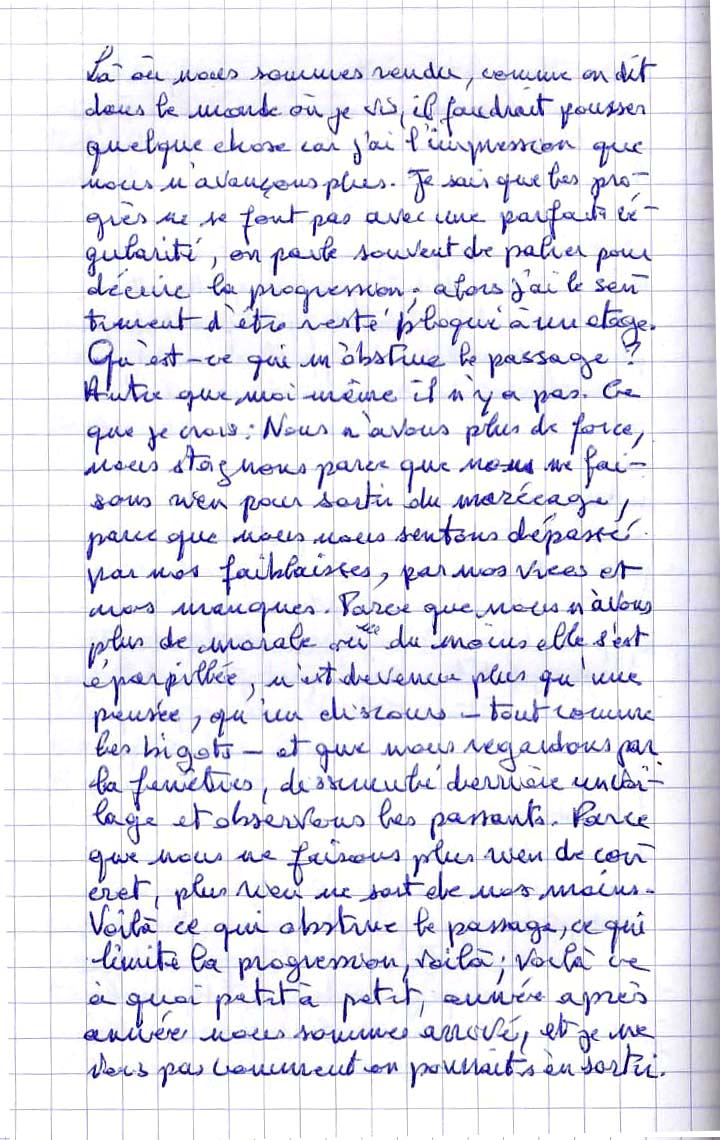 Là où nous sommes rendu, comme on dit
dans le monde où je vis, il faudrait pousser
quelque chose car j'ai l'impression que
nous n'avançons plus. Je sais que les pro-
grès ne se font pas avec une parfaite ré-
gularité, on parle souvent de palier pour
décrire la progression; alors j'ai le sen
timent d'être resté bloqué à un étage.
Qu'est-ce qui m'obstrue le passage ?
Autre que moi-même il n'y a pas. Ce
que je crois: Nous n'avons plus de force,
nous stagnons parce que nous ne fai-
sons rien pour sortir du marécage,
parce que nous nous sentons dépassé
par nos faiblaisses, par nos vices et
nos manques. Parce que nous n'avons
plus de morale ou du moins elle s'est
éparpillée, n'est devenue plus qu'une
pensée, qu'un discours – tout comme
les bigots – et que nous regardons par
la fenêtres, dissimulé derrière un voi-
lage et observons les passants. Parce
que nous ne faisons plus rien de con
cret, plus rien ne sort de nos mains.
Voilà ce qui obstrue le passage, ce qui
limite la progression, voilà; voilà ce
à quoi petit à petit, année après
année nous sommes arrivé, et je ne
vois pas comment on pourrait s'en sortir.